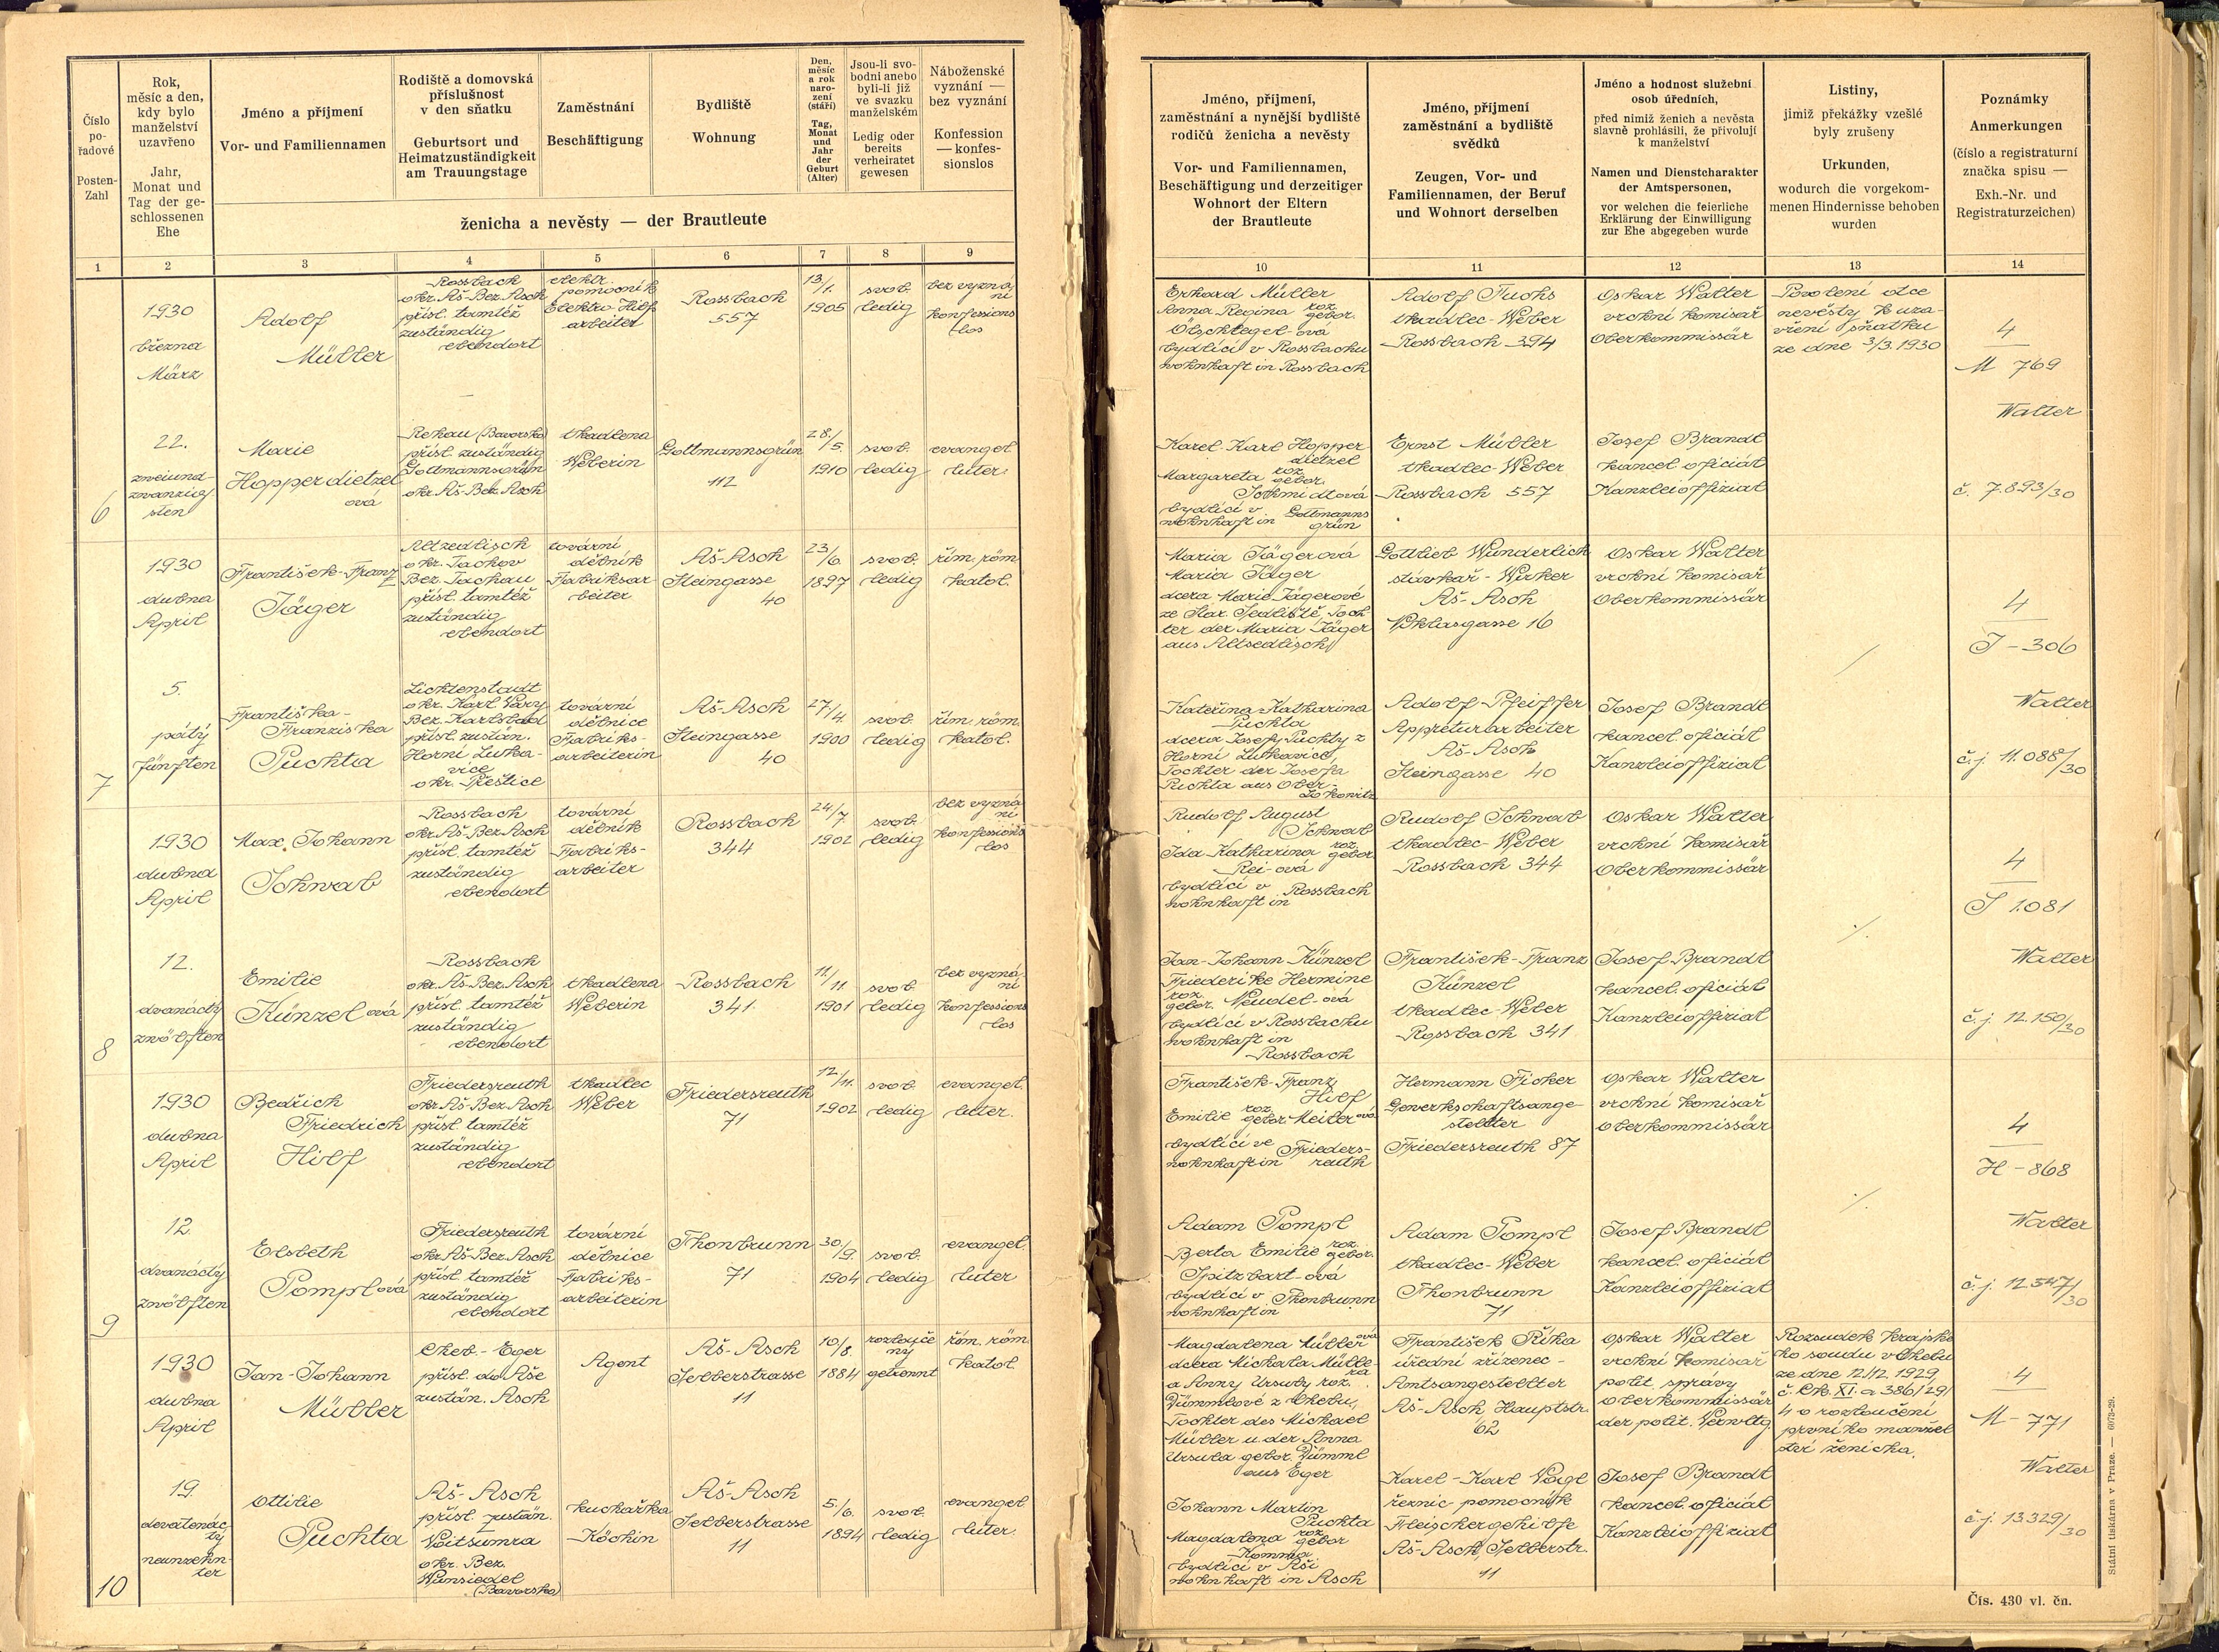 Číslo
po-
řadové
Posten-
Zahl
Rok,
měsíc a den,
kdy bylo
manželství
uzavřeno
Jahr,
Monat und
Tag der ge-
schlossenen
Ehe
Jméno a příjmení
Vor- und Familiennamen
Rodiště a domovská
příslušnost
v den sňatku
Geburtsort und
Heimatzuständigkeit
am Trauungstage
Zaměstnání
Beschäftigung
Bydliště
Wohnung
Den,
měsíc
a rok
naro-
zení
(stáří)
Tag,
Monat
und
Jahr
der
Geburt
(Alter)
Jsou-li svo-
bodni anebo
byli-li již
ve svazku
manželském
Ledig oder
bereits
verheiratet
gewesen
Náboženské
vyznání —
bez vyznání
Konfession
— konfes-
sionslos
ženicha a nevěsty — der Brautleute
Jméno, příjmení,
zaměstnání a nynější bydliště
rodičů ženicha a nevěsty
Vor- und Familiennamen,
Beschäftigung und derzeitiger
Wohnort der Eltern
der Brautleute
Jméno, příjmení
zaměstnání a bydliště
svědků
Zeugen, Vor- und
Familiennamen, der Beruf
und Wohnort derselben
Jméno a hodnost služební
osob úředních,
před nimiž ženich a nevěsta
slavně prohlásili, že přivolují
k manželství
Namen und Dienstcharakter
der Amtspersonen,
vor welchen die feierliche
Erklärung der Einwilligung
zur Ehe abgegeben wurde
Listiny,
jimiž překážky vzešlé
byly zrušeny
Urkunden,
wodurch die vorgekom-
menen Hindernisse behoben
wurden
Poznámky
Anmerkungen
(číslo a registraturní
značka spisu —
Exh.-Nr. und
Registraturzeichen)
1 2 3 4 5 6 7 8 9 10 11 12 13 14
6
1930
března
März
22.
zweiund-
zwanzig-
sten
Adolf
Müller
Rossbach
okr. Aš-Bez. Asch
přísl. tamtéž
zuständig
ebendort
elektr.
pomocník
Elektro-Hilfs
arbeiter
Rossbach
557
13/1.
1905
svob.
ledig
bez vyzná-
ní
konfessions
los
Erhard Müller
Anna Regina roz. gebor.
Ölschlegel-ová
bydlící v Rossbachu
wohnhaft in Rossbach
Adolf Fuchs
tkadlec-Weber
Rossbach 394
Oskar Walter
vrchní komisař
Oberkommissär
Povolení otce
nevěsty k uza-
vření sňatku
ze dne 3/3. 1930
4
M 769
Walter
Marie
Hopperdietzel
ová
Rehau (Bavorsko)
přísl. zuständig
Gottmannsgrün
okr. Aš-Bez. Asch
tkadlena
Weberin
Gottmannsgrün
112
28./5.
1910
svob.
ledig
evangel.
luter.
Karel-Karl Hopper
dietzel
Margareta roz. gebor.
Schmidtová
bydlící v
wohnhaft in Gottmanns
grün
Ernst Müller
tkadlec-Weber
Rossbach 557
Josef Brandl
kancel. oficiál
Kanzleioffizial
č. 7.893/30
7
1930
dubna
April
5.
pátý
fünften
František-Franz
Jäger
Altzedlisch
okr. Tachov
Bez. Tachau
přísl. tamtéž
zuständig
ebendort
tovární
dělník
Fabriksar
beiter
Aš-Asch
Steingasse
40
23/6.
1897
svob.
ledig
řím. röm.
katol.
Maria Jägerová
Maria Jäger
dcera Marie Jägerové
ze Star. Sedliště, Toch-
ter der Maria Jäger
aus Altsedlisch
Gottlieb Wunderlich
stávkař-Wirker
Aš-Asch
Niklasgasse 16
Oskar Walter
vrchní komisař
Oberkommissär
4
J-306
Walter
Františka-
Franziska
Puchta
Lichtenstadt
okr. Karl. Vary
Bez. Karlsbad
přísl. zustän.
Horní Luka-
vice
okr. Přeštice
tovární
dělnice
Fabriks-
arbeiterin
Aš-Asch
Steingasse
40
27/4.
1900
svob.
ledig
řím. röm.
katol.
Kateřina-Katharina
Puchta
dcera Josefy Puchty z
Horní Lukavice,
Tochter der Josefa
Puchta aus Ober-
Lukowitz
Adolf Pfeiffer
Appreturarbeiter
Aš-Asch
Steingasse 40
Josef Brandl
kancel. oficiál
Kanzleioffizial
č.j. 11.088/30
8
1930
dubna
April
12.
dvanáctý
zwölften
Max Johann
Schwab
Rossbach
okr. Aš-Bez. Asch
přísl. tamtéž
zuständig
ebendort
tovární
dělník
Fabriks-
arbeiter
Rossbach
344
24/7.
1902
svob.
ledig
bez vyzná-
ní
konfessions
los
Rudolf August
Schwab
Ida Katharina roz. gebor.
Rei-ová
bydlící v
wohnhaft in Rossbach
Rudolf Schwab
tkadlec-Weber
Rossbach 344
Oskar Walter
vrchní komisař
Oberkommissär
4
S 1.081
Walter
Emilie
Künzel ová
Rossbach
okr. Aš-Bez. Asch
přísl. tamtéž
zuständig
ebendort
tkadlena
Weberin
Rossbach
341.
11/11.
1901
svob.
ledig
bez vyzná-
ní
konfessions
los
Jan-Johann Künzel
Friederike Hermine
roz. gebor. Neudel-ová
bydlící v Rossbachu
wohnhaft in
Rossbach
František-Franz
Künzel
tkadlec-Weber
Rossbach 341
Josef Brandl
kancel. oficiál
Kanzleioffizial
č.j. 12.150/30
9
1930
dubna
April
12.
dvanáctý
zwölften
Bedřich
Friedrich
Hilf
Friedersreuth
okr. Aš-Bez. Asch
přísl. tamtéž
zuständig
ebendort
tkadlec
Weber
Friedersreuth
71
12/11.
1902
svob.
ledig
evangel.
luter.
František-Franz
Hilf
Emilie roz. gebor. Meiler ová
bydlící ve
wohnhaft in Frieders-
reuth
Hermann Ficker
Gewerkschaftsange-
stellter
Friedersreuth 87
Oskar Walter
vrchní komisař
Oberkommissär
4
H-868
Walter
Elsbeth
Pompl ová
Friedersreuth
okr. Aš-Bez. Asch
přísl. tamtéž
zuständig
ebendort
tovární
dělnice
Fabriks-
arbeiterin
Thonbrunn
71
30./9.
1904
svob.
ledig
evangel.
luter
Adam Pompl
Berta Emilie roz. gebor.
Spitzbart-ová
bydlící v
wohnhaft in Thonbrunn
Adam Pompl
tkadlec-Weber
Thonbrunn
71
Josef Brandl
kancel. oficiál
Kanzleioffizial
č.j. 12547/30
10
1930
dubna
April
19.
devatenác-
tý
neunzehn-
ter
Jan-Johann
Müller
Cheb.-Eger
přísl. do Aše
zustän. Asch
Agent
Aš-Asch
Selberstrasse
11
10/8.
1884
rozlouče
ný
getrennt
řím. röm.
katol.
Magdalena Müller ová
dcera Michala Mülle-
ra
a Anny Ursuly roz.
Dümmlové z Chebu,
Tochter des Michael
Müller u. der Anna
Ursula gebor. Dümml
aus Eger
František Říha
úřední zřízenec-
Amtsangestellter
Aš-Asch Hauptstr.
62
Oskar Walter
vrchní komisař
polit. správy
Oberkommissär
der polit. Verwltg.
Rozsudek krajské
ho soudu v Chebu
ze dne 12/12 1929,
č. Ck. XI. a 386/29/
4 o rozloučení
prvního manžel
ství ženicha.
4
M-771
Walter
Ottilie
Puchta
Aš-Asch
přísl. zustän.
Voitsumra
okr. Bez.
Wunsiedel
(Bavorsko)
kuchařka
Köchin
Aš-Asch
Selberstrasse
11
5./6.
1894
svob.
ledig
evangel.
luter.
Johann Martin
Puchta
Magdalena roz. gebor
Komma
bydlící v Aši
wohnhaft in Asch
Karel-Karl Voigt
řeznic. pomocník
Fleischergehilfe
Aš-Asch, Selberstr.
11
Josef Brandl
kancel. oficiál
Kanzleioffizial
č.j. 13329/30
Státní tiskárna v Praze. — 6073-29.
Čís. 430 vl. čn.